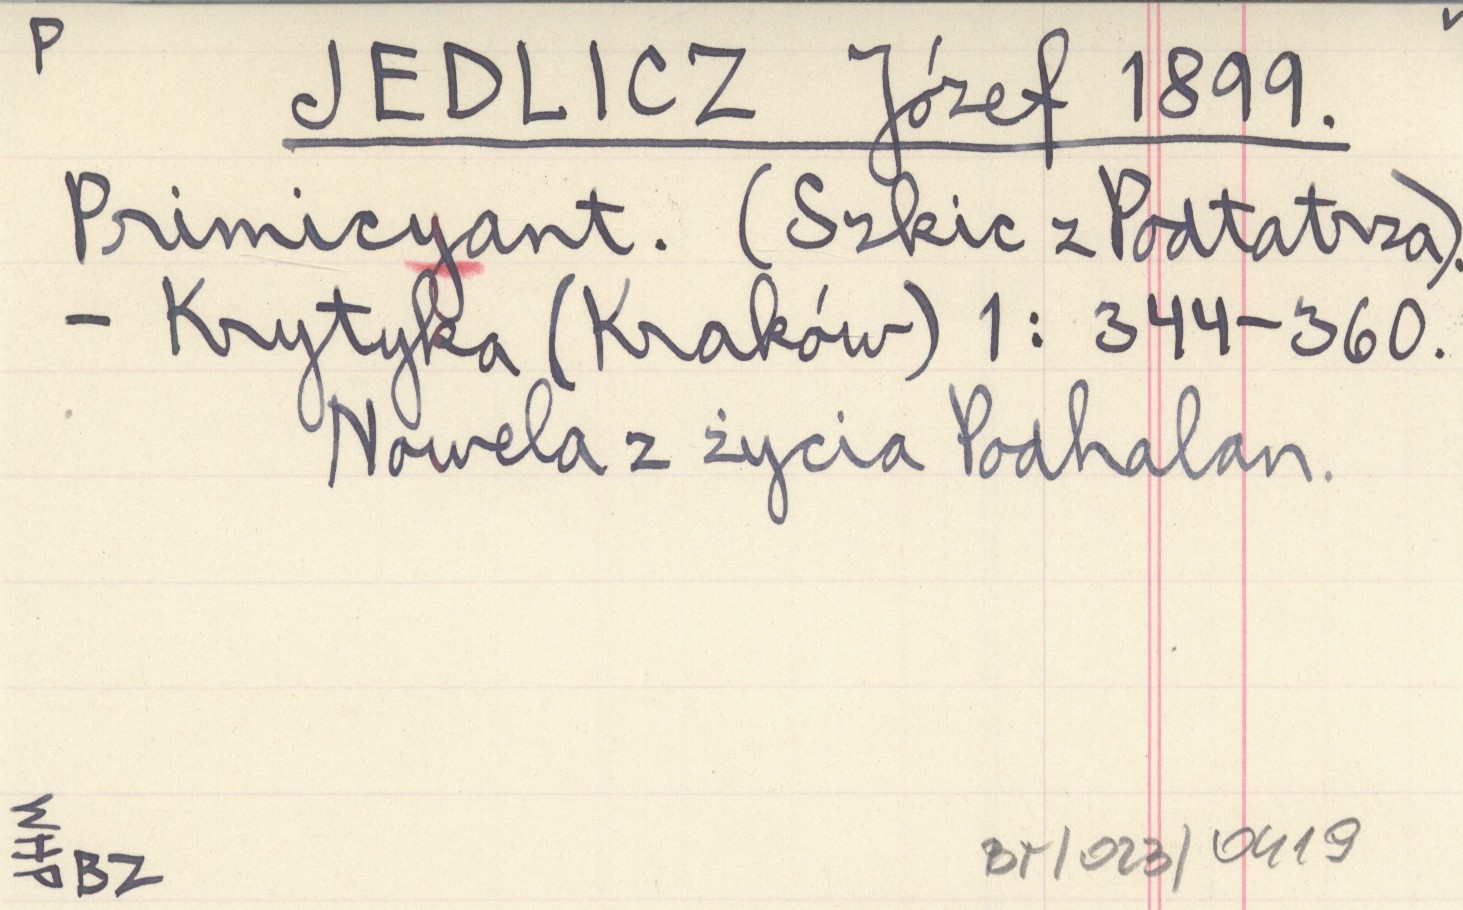 P
JEDLICZ Józef 1899.
Primicyant. (Szkic z Podtatrza).
- Krytyka (Kraków) 1: 344-360.
Nowela z życia Podhalan.
WHP
BZ
BT/023/0419